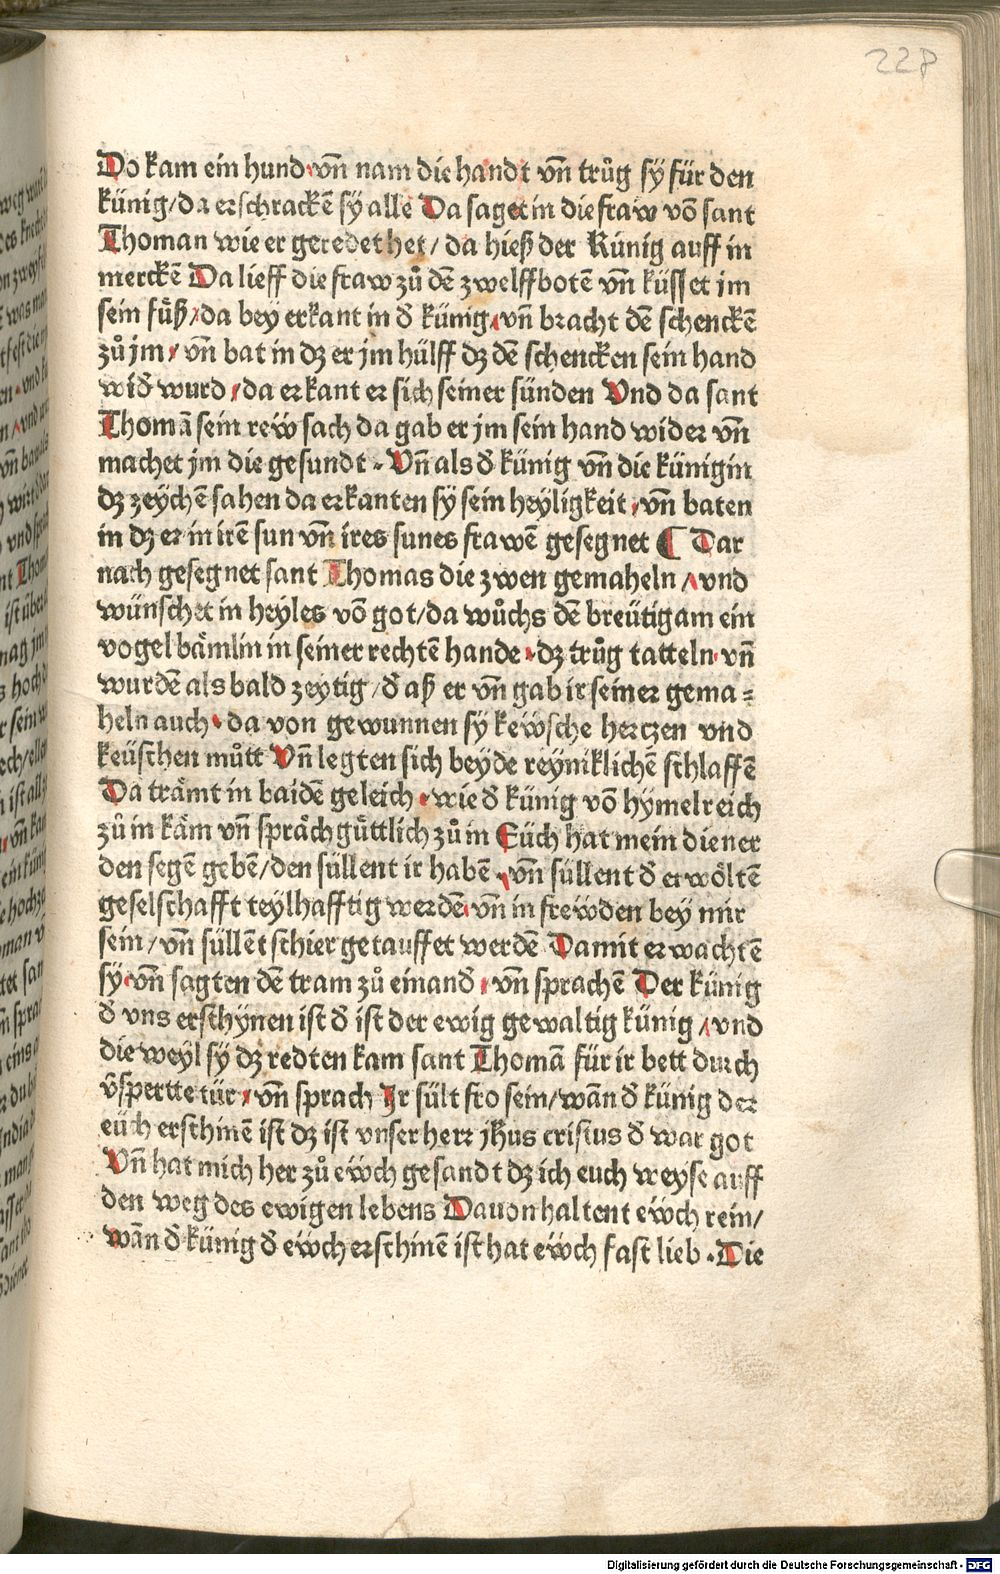 228
Do kam ein hund·vn̄ nam die handt vn̄ trůg sy für den
künig/da erschrackē sy alle Da saget in die fraw vō sant
Thoman wie er geredet het/ da hieß der Künig auff in
merckē Da lieff die fraw zů dē zwelffbotē vn̄ küsset jm
sein fůß/da bey erkant in đ künig·vn̄ bracht dē schenckē
zů jm·vn̄ bat in dz er jm hülff dz dē schencken sein hand
wiđ wurd·da erkant er sich seiner sünden Vnd da sant
Thomā sein reẅ sach da gab er jm sein hand wider vn̄
machet jm die gesundt·Vn̄ als đ künig vn̄ die künigin
dz zeychē sahen da erkanten sy sein heyligkeit·vn̄ baten
in dz er in irē sun vn̄ ires sunes frawē gesegnet ¶ Dar
nach gesegnet sant Thomas die zwen gemaheln/vnd
wünschet in heyles vō got/da wůchs dē breütigam ein
vogel bämlin in seiner rechtē hande·dz trůg tatteln·vn̄
wurdē als bald zeytig/đ aß er vn̄ gab ir seiner gema=
heln auch·da von gewunnen sy keẅsche hertzen vnd
keüschen můtt Vn̄ legten sich beyde reyniklichē schlaffē
Da trämt in baidē geleich·wie đ künig vō hymelreich
zů in käm vn̄ spräch güttlich zů in Eüch hat mein diener
den segē gebē/den süllent ir habē·vn̄ süllent đ erwöltē
geselschafft teylhafftig werdē·vn̄ in frewden bey mir
sein/vn̄ süllēt schier getauffet werdē Damit erwachtē
sy·vn̄ sagten dē tram zů einanđ·vn̄ sprachē Der künig
đ vns erschynen ist đ ist der ewig gewaltig künig/vnd
die weyl sy dz redten kam sant Thomā für ir bett durch
v̄spertte tür·vn̄ sprach Ir sült fro sein/wān đ künig der
eüch erschinē ist dz ist vnser herr jhus cristus đ war got
Vn̄ hat mich her zů eẅch gesandt dz ich euch weyse auff
den weg des ewigen lebens Dauon haltent eẅch rein/
wān đ künig đ eẅch erschinē ist hat eẅch fast lieb·Die
Digitalisierung gefördert durch die Deutsche Forschungsgemeinschaft - DFG